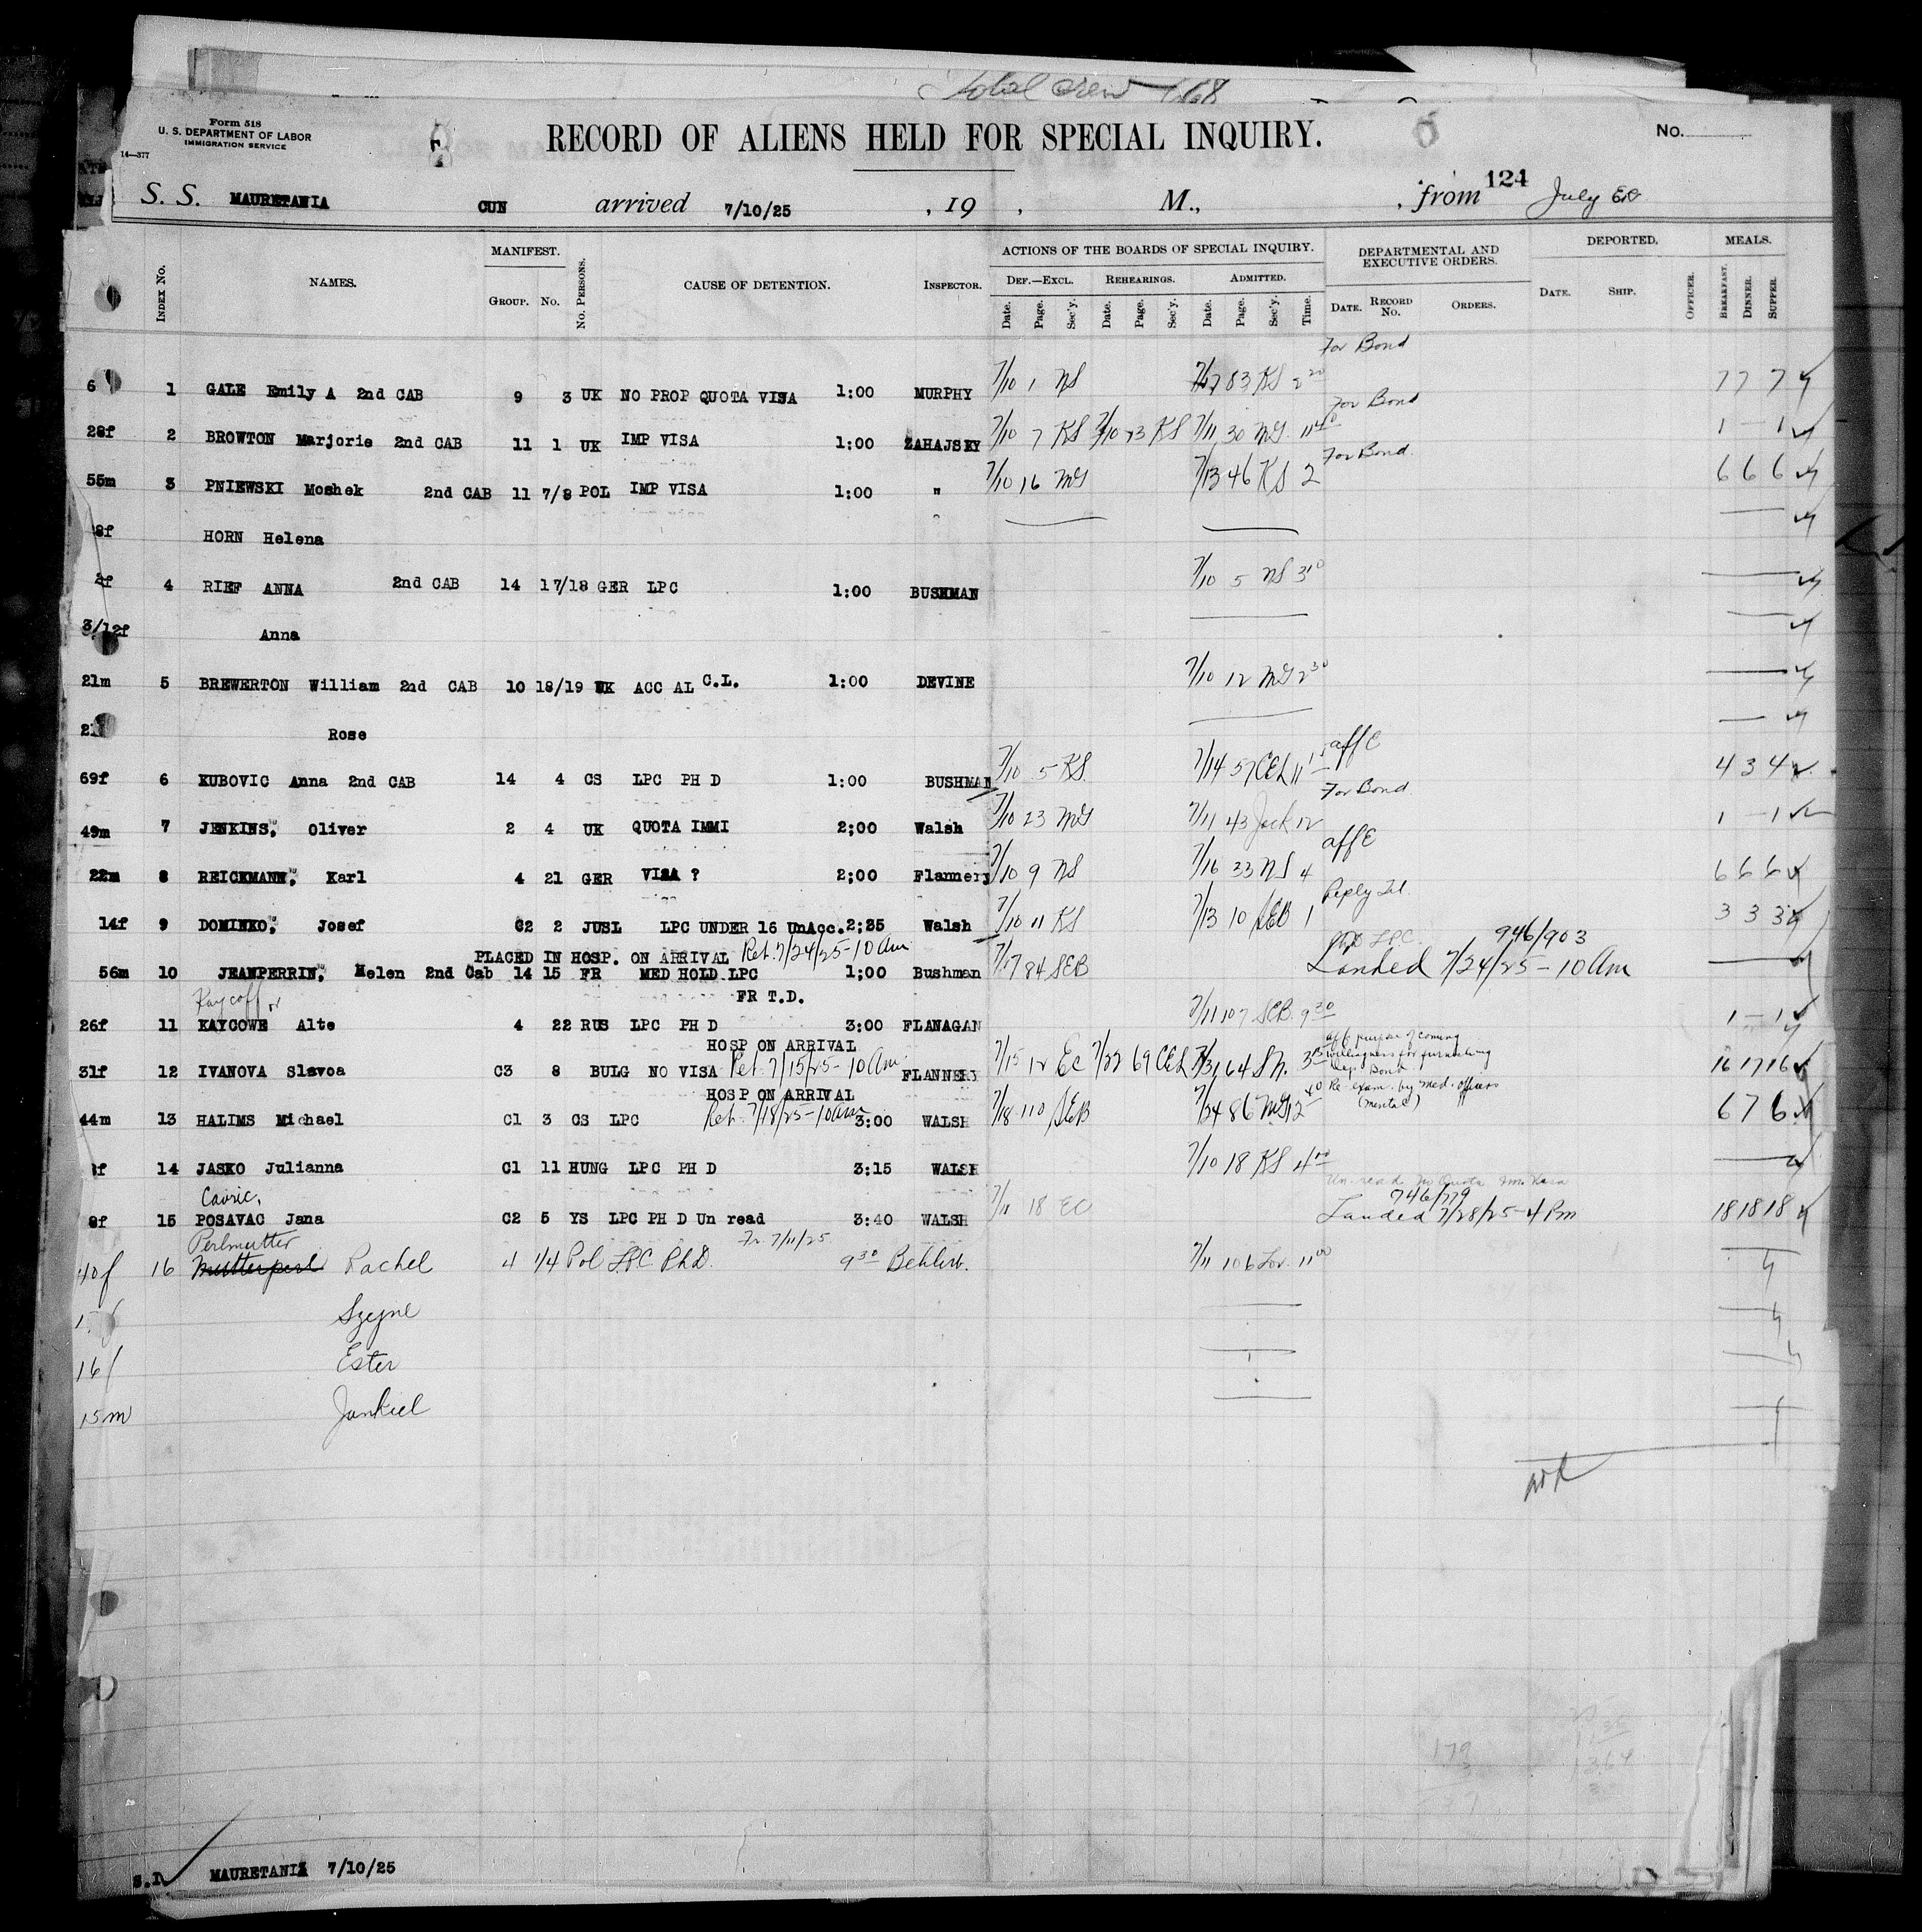 total crew 
Form 518
U. S. DEPARTMENT OF LABOR
IMMIGRATION SERVICE
14—377
RECORD OF ALIENS HELD FOR SPECIAL INQUIRY.
No.
S. S. MAURETANIA CUN arrived 7/10/25 , 19 , M., , from 124 July
INDEX No. NAMES. MANIFEST. GROUP. No. No. PERSONS. CAUSE OF DETENTION. INSPECTOR. ACTIONS OF THE BOARDS OF SPECIAL INQUIRY. DEPARTMENTAL AND EXECUTIVE ORDERS. DEPORTED. MEALS.
DEF.—EXCL. REHEARINGS. ADMITTED.
Date. Page. Sec'y. Date. Page. Sec'y. Date. Page. Sec'y. Time. DATE. RECORD No. ORDERS. DATE. SHIP. OFFICER. BREAKFAST. DINNER. SUPPER.
For Bond
6 1 GALE Emily A 2nd CAB 9 3 UK NO PROP QUOTA VISA 1:00 MURPHY 7/10 1 NS 83 KS 2 20 7 7 7
For Bond
28f 2 BROWTON Marjorie 2nd CAB 11 1 UK IMP VISA 1:00 ZAHAJSKY 7/10 7 KS 7/10 13 KS 7/11 30 MG 11 40 1 — 1
For Bond
55m 3 PNIEWSKI Moshek 2nd CAB 11 7/8 POL IMP VISA 1:00 " 7/10 16 MG 7/13 46 KS 2 6 6 6
8f HORN Helena
2f 4 RIEF ANNA 2nd CAB 14 17/18 GER LPC 1:00 BUSHMAN 7/10 5 NS 3 10
3/12f Anna
21m 5 BREWERTON William 2nd CAB 10 18/19 UK ACC AL C.L. 1:00 DEVINE 7/10 12 MG 2 30
2 Rose
aff E
69f 6 KUBOVIC Anna 2nd CAB 14 4 CS LPC PH D 1:00 BUSHMAN 7/10 5 KS 7/14 57 CEL 11 4 3 4
For Bond
49m 7 JENKINS, Oliver 2 4 UK QUOTA IMMI 2;00 Walsh 7/10 23 MG 7/11 43 Jack 12 1 — 1
aff E
22m 8 REICKMANN, Karl 4 21 GER VISA ? 2;00 Flannery 7/10 9 NS 7/16 33 NS 4 6 6 6
Reply Tel.
14f 9 DOMINKO, Josef C2 2 JUSL LPC UNDER 16 UnAcc. 2;25 Walsh 7/10 11 KS 7/13 10 SEB 1 3 3 3
PLACED IN HOSP. ON ARRIVAL Ret. 7/24/25 - 10 Am LPC 946/903
56m 10 JEANPERRIN, Helen 2nd Cab 14 15 FR MED HOLD LPC 1;00 Bushman 7/17 84 SEB Landed 7/24/25 - 10 Am
FR T.D.
Kaycoff or
26f 11 KAYCOWE Alte 4 22 RUS LPC PH D 3:00 FLANAGAN 7/11 107 SEB 9 30 1 — 1
HOSP ON ARRIVAL aff purpose of coming
Ret. 7/15/25 - 10 Am willingness for furnishing
31f 12 IVANOVA Slavoa C3 8 BULG NO VISA FLANNERY 7/15 12 EC 7/22 69 CEL 7/31 64 3 Bond 16 17 16
HOSP ON ARRIVAL Re-exam. by med. officers
44m 13 HALIMS Michael C1 3 CS LPC Ret. 7/18/25 - 10 am 3:00 WALSH 7/18 110 SEB 7/24 86 MG 12 40 (mental) 6 7 6
f 14 JASKO Julianna C1 11 HUNG LPC PH D 3:15 WALSH 7/10 18 KS 4
Cavric, 746/779
8f 15 POSAVAC Jana C2 5 YS LPC PH D Un read 3:40 WALSH 7/11 18 EC Landed 7/28/25 - 4 Pm 18 18 18
Perlmutter Fr. 7/11/25
40f 16 Mutterperl Rachel 4 1/4 Pol LPC Ph.D. 9 30 7/11 106 11 00
Szejne
16f Ester
15m Jankiel
S.I. MAURETANIA 7/10/25